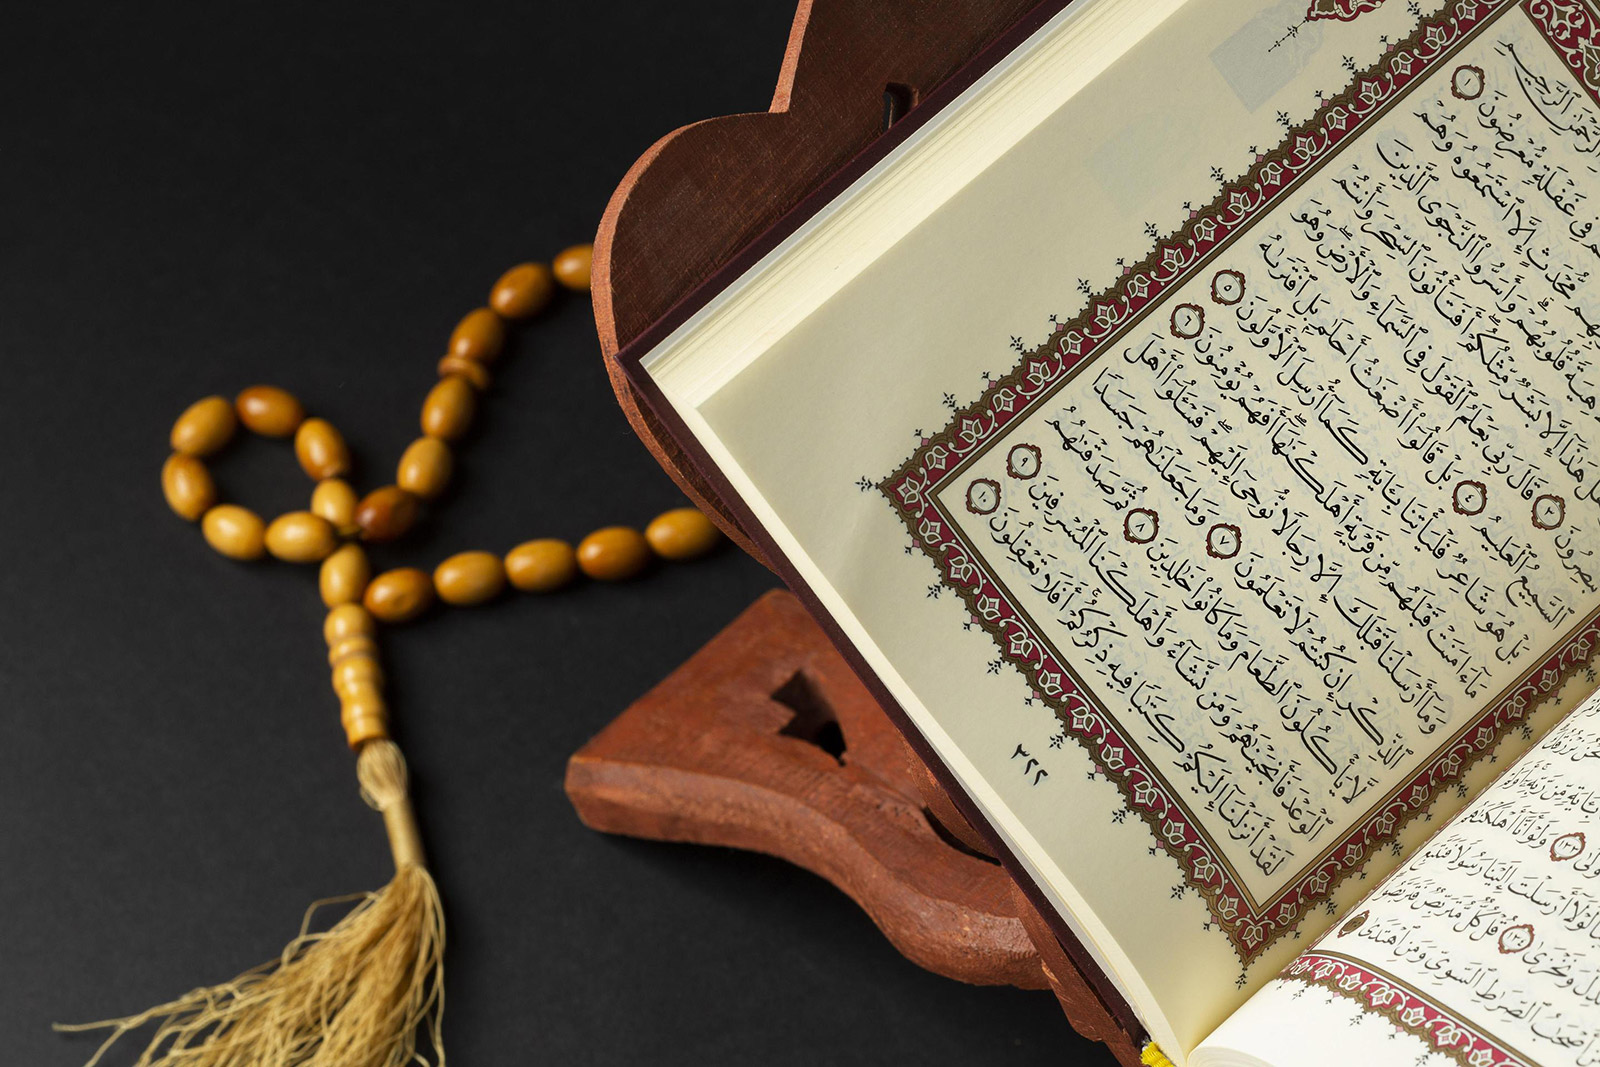 نَحْنُ نَرْزُقُكَ
بِـَٔايَةٍ مِّن رَّبِّهِۦٓ أَوَلَمْ
١٣٣ وَلَوْ أَنَّآ أَهْلَكْنَٰهُم
لَوْلَآ أَرْسَلْتَ إِلَيْنَا رَسُولًا فَنَتَّبِعَ
وَنَخْزَىٰ ١٣٤ قُلْ كُلٌّ مُّتَرَبِّصٌ فَتَرَبَّصُوا۟
أَصْحَٰبُ ٱلصِّرَٰطِ ٱلسَّوِىِّ وَمَنِ ٱهْتَدَىٰ
ٱلرَّحْمَٰنِ ٱلرَّحِيمِ
فِى غَفْلَةٍ مُّعْرِضُونَ ١
مُّحْدَثٍ إِلَّا ٱسْتَمَعُوهُ وَهُمْ
قُلُوبُهُمْ ۗ وَأَسَرُّوا۟ ٱلنَّجْوَى ٱلَّذِينَ
هَلْ هَٰذَآ إِلَّا بَشَرٌ مِّثْلُكُمْ ۖ أَفَتَأْتُونَ ٱلسِّحْرَ وَأَنتُمْ
تُبْصِرُونَ ٣ قَالَ رَبِّى يَعْلَمُ ٱلْقَوْلَ فِى ٱلسَّمَآءِ وَٱلْأَرْضِ ۖ وَهُوَ
ٱلسَّمِيعُ ٱلْعَلِيمُ ٤ بَلْ قَالُوٓا۟ أَضْغَٰثُ أَحْلَٰمٍۭ بَلِ ٱفْتَرَىٰهُ
بَلْ هُوَ شَاعِرٌ فَلْيَأْتِنَا بِـَٔايَةٍ كَمَآ أُرْسِلَ ٱلْأَوَّلُونَ ٥
مَآ ءَامَنَتْ قَبْلَهُم مِّن قَرْيَةٍ أَهْلَكْنَٰهَآ ۖ أَفَهُمْ يُؤْمِنُونَ ٦
وَمَآ أَرْسَلْنَا قَبْلَكَ إِلَّا رِجَالًا نُّوحِىٓ إِلَيْهِمْ ۖ فَسْـَٔلُوٓا۟ أَهْلَ
ٱلذِّكْرِ إِن كُنتُمْ لَا تَعْلَمُونَ ٧ وَمَا جَعَلْنَٰهُمْ جَسَدًا
لَّا يَأْكُلُونَ ٱلطَّعَامَ وَمَا كَانُوا۟ خَٰلِدِينَ ٨ ثُمَّ صَدَقْنَٰهُمُ
ٱلْوَعْدَ فَأَنجَيْنَٰهُمْ وَمَن نَّشَآءُ وَأَهْلَكْنَا ٱلْمُسْرِفِينَ ٩
لَقَدْ أَنزَلْنَآ إِلَيْكُمْ كِتَٰبًا فِيهِ ذِكْرُكُمْ ۖ أَفَلَا تَعْقِلُونَ ١٠
٣٢٢